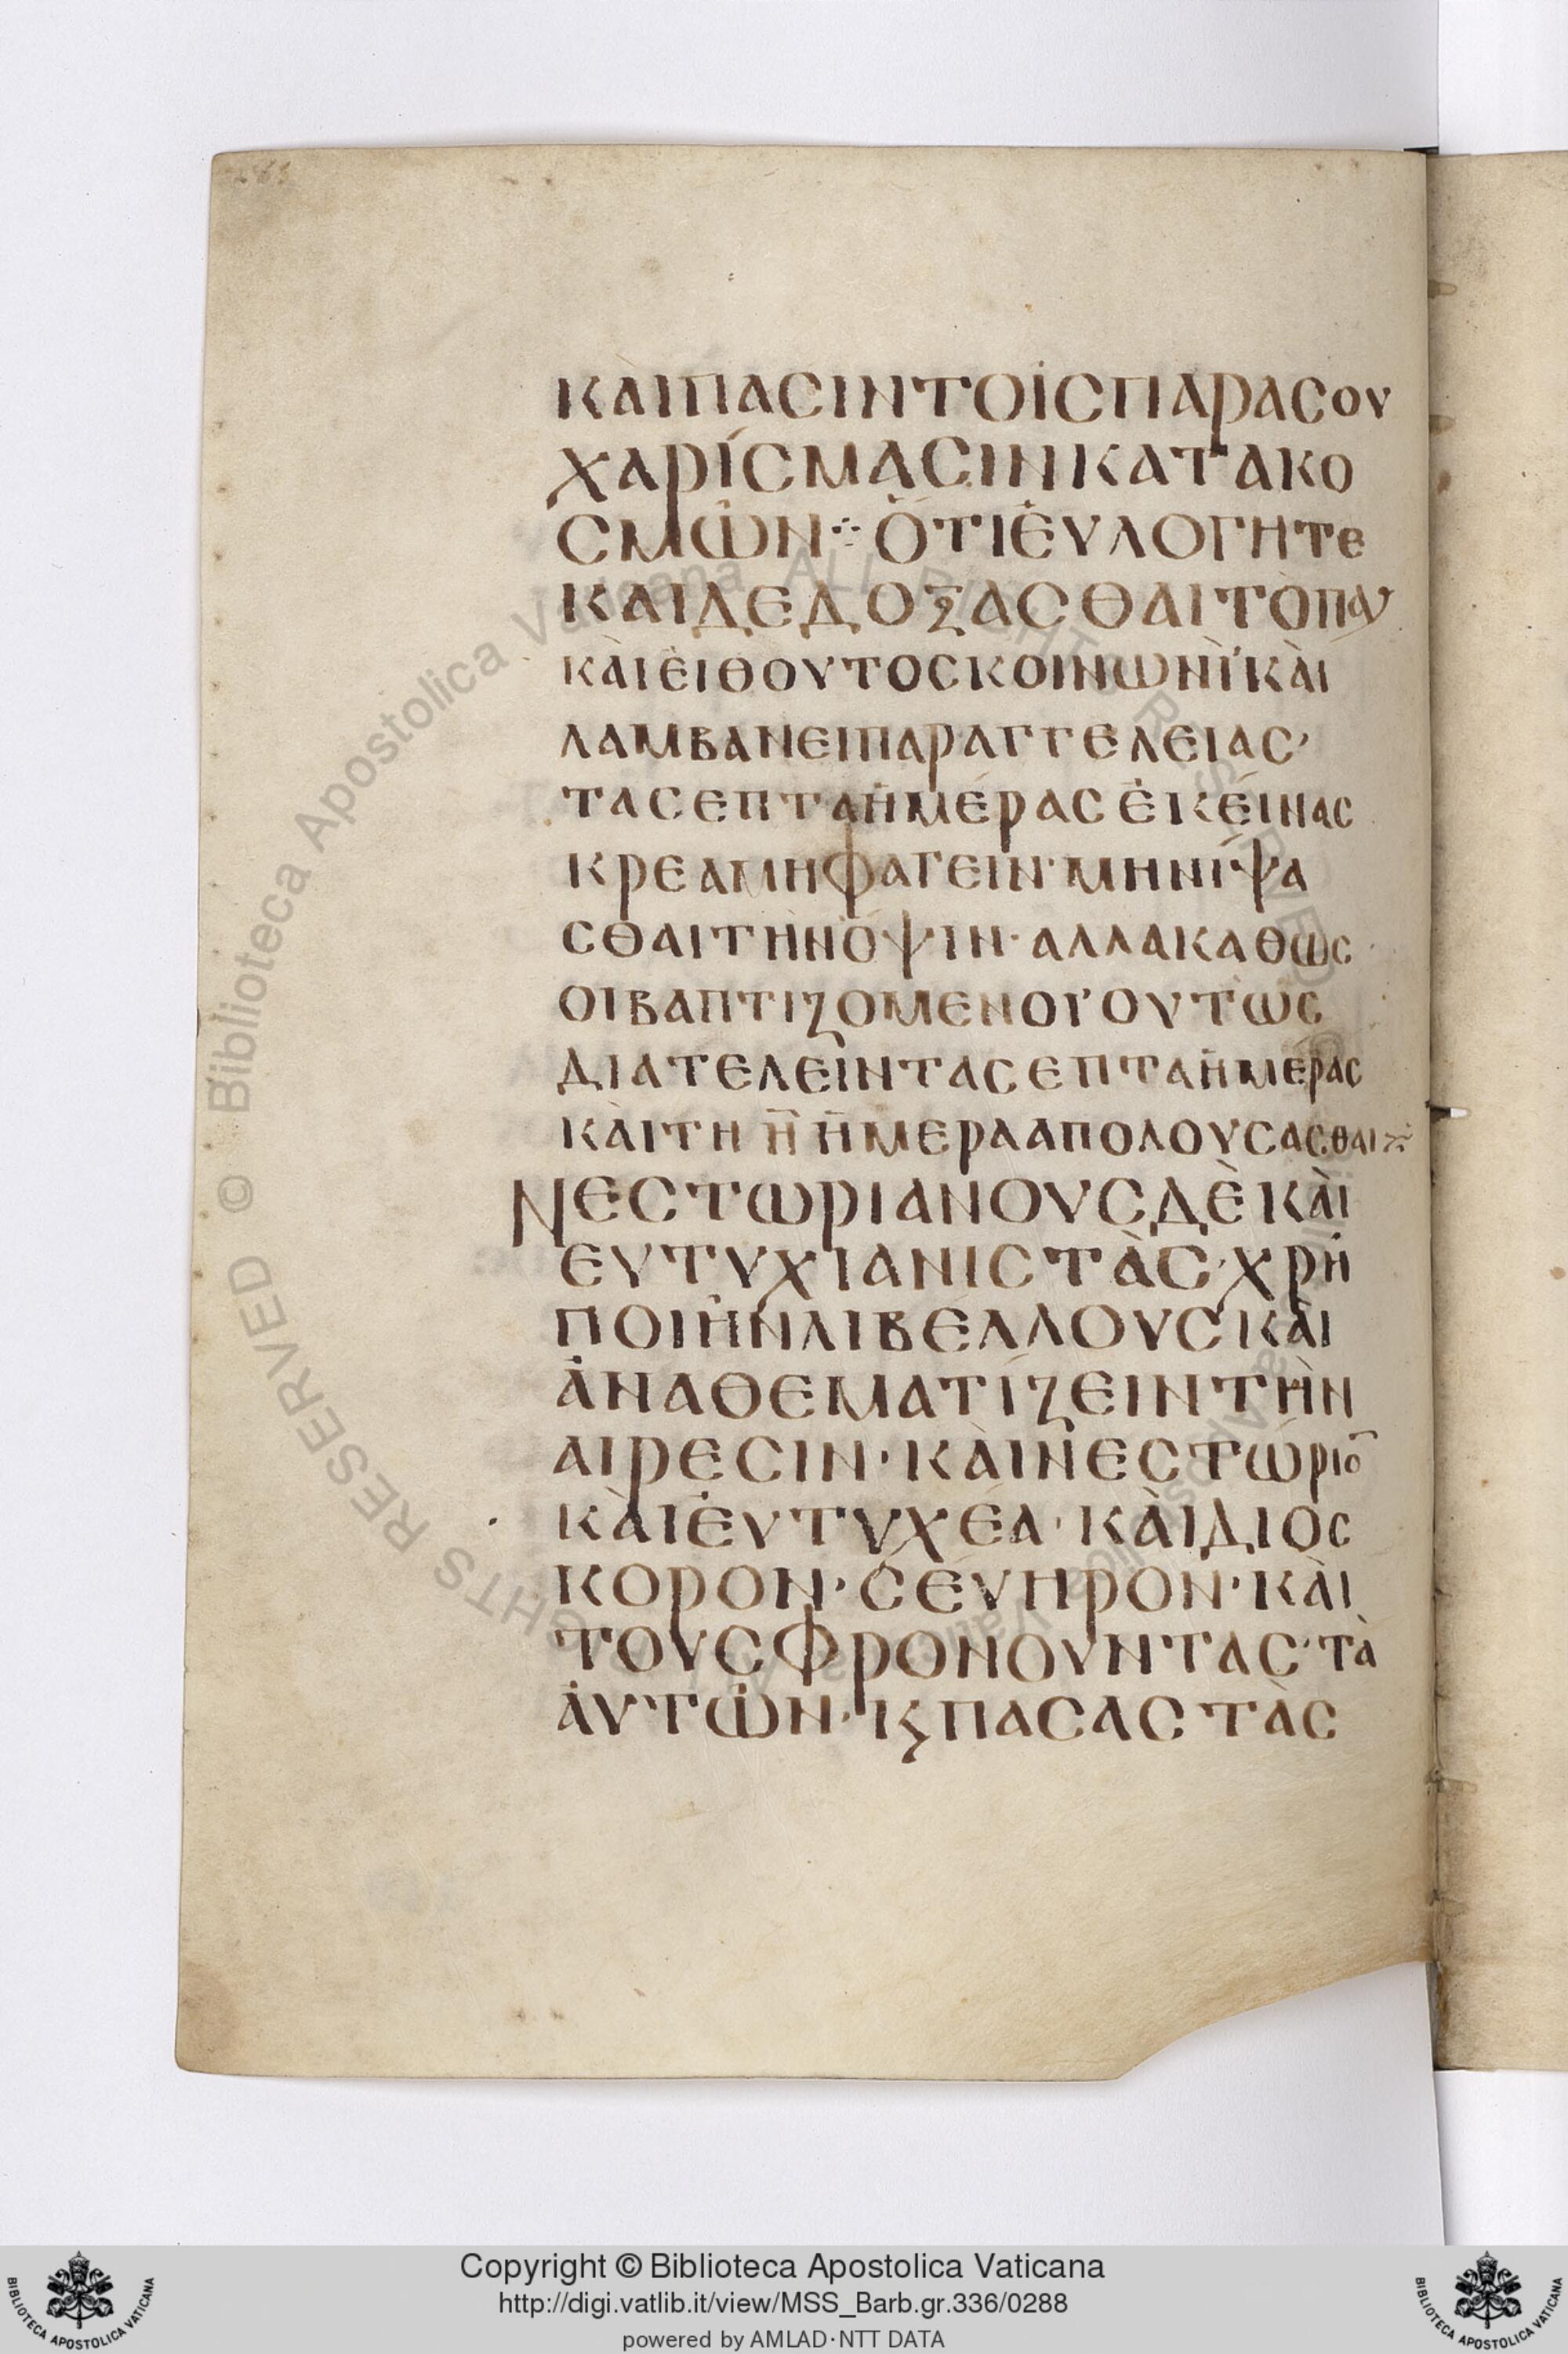 ΚΑΙΠΑϹΙΝΤΟΙϹΠΑΡΑϹΟΥ
ΧΑΡΊϹΜΑϹΙΝΚΑΤΑΚΟ
ϹΜΩΝ⁘ὍΤΙΕΥΛΟΓΗΤΕ
ΚΑΙΔΕΔΟΞΑϹΘΑΙΤΟΠΑΥ
ΚᾺΙΕΙΘΟΥΤΟϹΚΟΙΝΩΝΪΚᾺΙ
ΛΑΜΒΑΝΕΙΠΑΡΑΓΓΕΛΕΙΑϹ·
ΤΑϹΕΠΤΑΗΜΕΡΑϹΕΚΕΙΝΑϹ
ΚΡΕΑΜΗΦΑΓΕΙΝ·ΜΗΝΙΨΑ
ϹΘΑΙΤΗΝΟΨΙΝ·ΑΛΛΑΚΑΘΩϹ
ΟΙΒΑΠΤΙΖΟΜΕΝΟΙ·ΟΥΤΩϹ
ΔΙΑΤΕΛΕΙΝΤΑϹΕΠΤΑΗΜΕΡΑϹ
ΚᾺΙΤΗ Η̄ ΗΜΕΡΑΑΠΟΛΟΥϹΑϹΘΑΙ
ΝΕϹΤΩΡΙΑΝΟΥϹΔῈΚᾺΙ
ΕΥΤΥΧΙΑΝΙϹΤᾺϹ·ΧΡΗ
ΠΟΙΗΝΛΙΒΕΛΛΟΥϹΚΑΙ
ἈΝΑΘΕΜΑΤΙΖΕΙΝΤῊΝ
ΑΙΡΕϹΙΝ·ΚᾺΙΝΕϹΤΩΡΙΟ̄
ΚᾺΙΕΥΤΥΧΕΑ·ΚᾺΙΔΙΟϹ
ΚΟΡΟΝ·ϹΕΥΗΡΟΝ·ΚᾺΙ
ΤΟΥϹΦΡΟΝΟΥΝΤΑϹ·ΤᾺ
ἈΥΤΩΝ·ΚϚΠΑϹΑϹΤᾺϹ
Copyright © Biblioteca Apostolica Vaticana
http://digi.vatlib.it/view/MSS_Barb.gr.336/0288
powered by AMLAD·NTT DATA